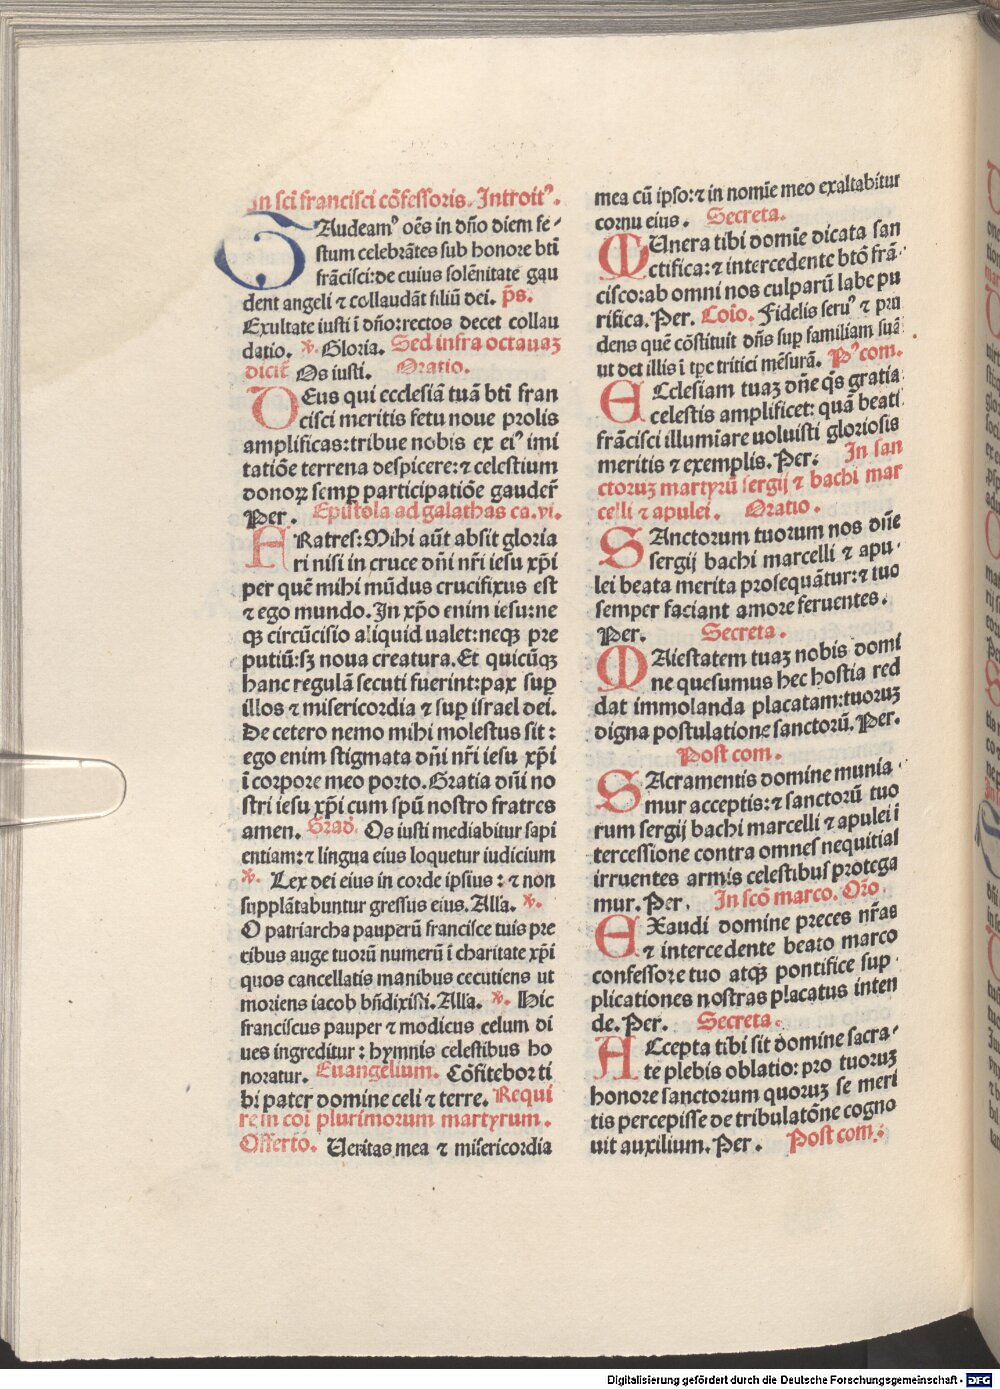 In sci francisci cõfessoris. Introitꝰ.
GAudeamꝰ oẽs in dño diem fe⸗
stum celebrãtes sub honore bti
frãcisci: de cuius solẽnitate gau
dent angeli ⁊ collaudãt filiũ dei. p̃s.
Exultate iusti ĩ dño: rectos decet collau
datio. ℣. Gloria. Sed infra octauaꝫ
dicit̃ Os iusti. Oratio.
DEus qui ecclesiã tuã bti fran
cisci meritis fetu noue prolis
amplificas: tribue nobis ex eiꝰ imi
tatiõe terrena despicere: ⁊ celestium
donoꝝ semp participatiõe gauder̃
Per. Epistola ad galathas ca. vi.
FRatres: Mihi aũt absit gloria
ri nisi in cruce dñi nr̃i iesu xp̃i
per quẽ mihi mũdus crucifixus est
⁊ ego mundo. In xp̃o enim iesu: ne
qꝫ circũcisio aliquid ualet: neqꝫ pre
putiũ: sꝫ noua creatura. Et quicũqꝫ
hanc regulã secuti fuerint: pax sup
illos ⁊ misericordia ⁊ sup israel dei.
De cetero nemo mihi molestus sit:
ego enim stigmata dñi nr̃i iesu xp̃i
ĩ corpore meo porto. Gratia dñi no
stri iesu xp̃i cum spũ nostro fratres
amen. Grad. Os iusti meditabitur sapi
entiam: ⁊ lingua eius loquetur iudicium
℣. Lex dei eius in corde ipsius: ⁊ non
supplãtabuntur gressus eius. Alla. ℣.
O patriarcha pauperũ francisce tuis pre
cibus auge tuorũ numerũ ĩ charitate xp̃i
quos cancellatis manibus cecutiens ut
moriens iacob bñdixisti. Alla. ℣. Hic
franciscus pauper ⁊ modicus celum di
ues ingreditur: hymnis celestibus ho
noratur. Euangelium. Cõfitebor ti
bi pater domine celi ⁊ terre. Requi
re in coi plurimorum martyrum.
Offerto. Ueritas mea ⁊ misericordia
mea cũ ipso: ⁊ in nomĩe meo exaltabitur
cornu eius. Secreta.
MUnera tibi domĩe dicata san
ctifica: ⁊ intercedente btõ frã⸗
cisco: ab omni nos culparũ labe pu
rifica. Per. Coĩo. Fidelis seruꝰ ⁊ pru
dens quẽ cõstituit dñs sup familiam suã
ut det illis ĩ tpe tritici mẽsurã. Pꝰ com.
ECclesiam tuaꝫ dñe q̃s gratia
celestis amplificet: quã beati
frãcisci illumĩare uoluisti gloriosis
meritis ⁊ exemplis. Per. In san
ctoruꝫ martyrũ sergij ⁊ bachi mar
celli ⁊ apulei. Oratio.
SAnctorum tuorum nos dñe
sergij bachi marcelli ⁊ apu⸗
lei beata merita prosequãtur: ⁊ tuo
semper faciant amore feruentes.
Per. Secreta.
MAiestatem tuaꝫ nobis domi
ne quesumus hec hostia red
dat immolanda placatam: tuoruꝫ
digna postulatione sanctorũ. Per.
Post com.
SAcramentis domine munia⸗
mur acceptis: ⁊ sanctorũ tuo
rum sergij bachi marcelli ⁊ apulei ĩ
tercessione contra omnes nequitias
irruentes armis celestibus protega
mur. Per. In scõ marco. Orõ.
EXaudi domine preces nr̃as
⁊ intercedente beato marco
confessore tuo atqꝫ pontifice sup⸗
plicationes nostras placatus inten
de. Per. Secreta.
ACcepta tibi sit domine sacra⸗
te plebis oblatio: pro tuoruꝫ
honore sanctorum quoruꝫ se meri
tis percepisse de tribulatõne cogno
uit auxilium. Per. Post com.:
Digitalisierung gefördert durch die Deutsche Forschungsgemeinschaft - DFG